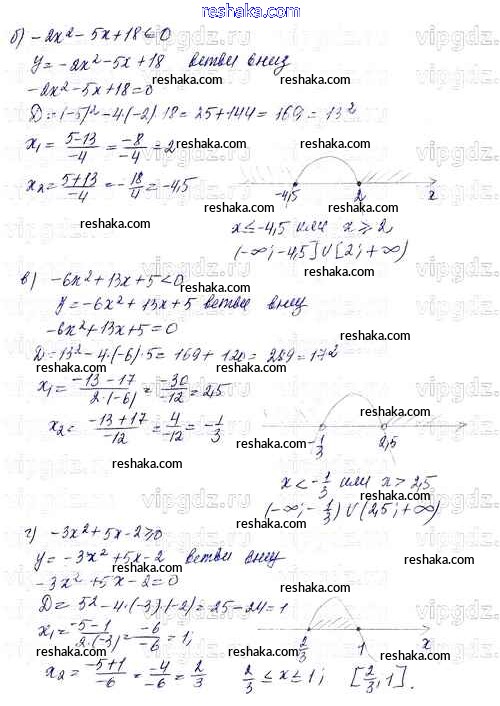 reshaka.com
б) -2x² - 5x + 18 ≤ 0
y = -2x² - 5x + 18 ветви вниз
-2x² - 5x + 18 = 0
D = (-5)² - 4·(-2)·18 = 25 + 144 = 169 = 13²
x₁ = (5-13)/(-4) = (-8)/(-4) = 2
x₂ = (5+13)/(-4) = -18/4 = -4,5
-4,5 2 x
x ≤ -4,5 или x ≥ 2,
(-∞; -4,5] ∪ [2; +∞)
в) -6x² + 13x + 5 < 0
y = -6x² + 13x + 5 ветви вниз
-6x² + 13x + 5 = 0
D = 13² - 4·(-6)·5 = 169 + 120 = 289 = 17²
x₁ = (-13-17)/(2·(-6)) = (-30)/(-12) = 2,5
x₂ = (-13+17)/(-12) = 4/(-12) = -1/3
-1/3 2,5
x < -1/3 или x > 2,5
(-∞; -1/3) ∪ (2,5; +∞)
г) -3x² + 5x - 2 ≥ 0
y = -3x² + 5x - 2 ветви вниз
-3x² + 5x - 2 = 0
D = 5² - 4·(-3)·(-2) = 25 - 24 = 1
x₁ = (-5-1)/(2·(-3)) = (-6)/(-6) = 1;
x₂ = (-5+1)/(-6) = (-4)/(-6) = 2/3
2/3 1 x
2/3 ≤ x ≤ 1; [2/3; 1].